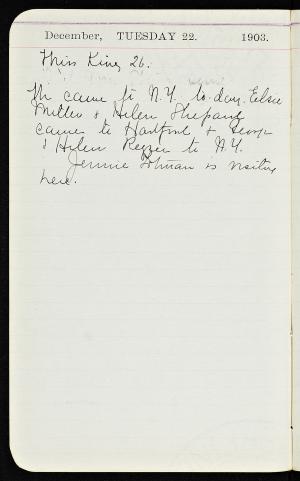 December, TUESDAY 22. 1903.
Miss King 26.
came fr N.Y. to-day. Elsie
Miller & Helen Shepard
came to Hartford & George
& Helen to N.Y.
Jennie is visiting
here.